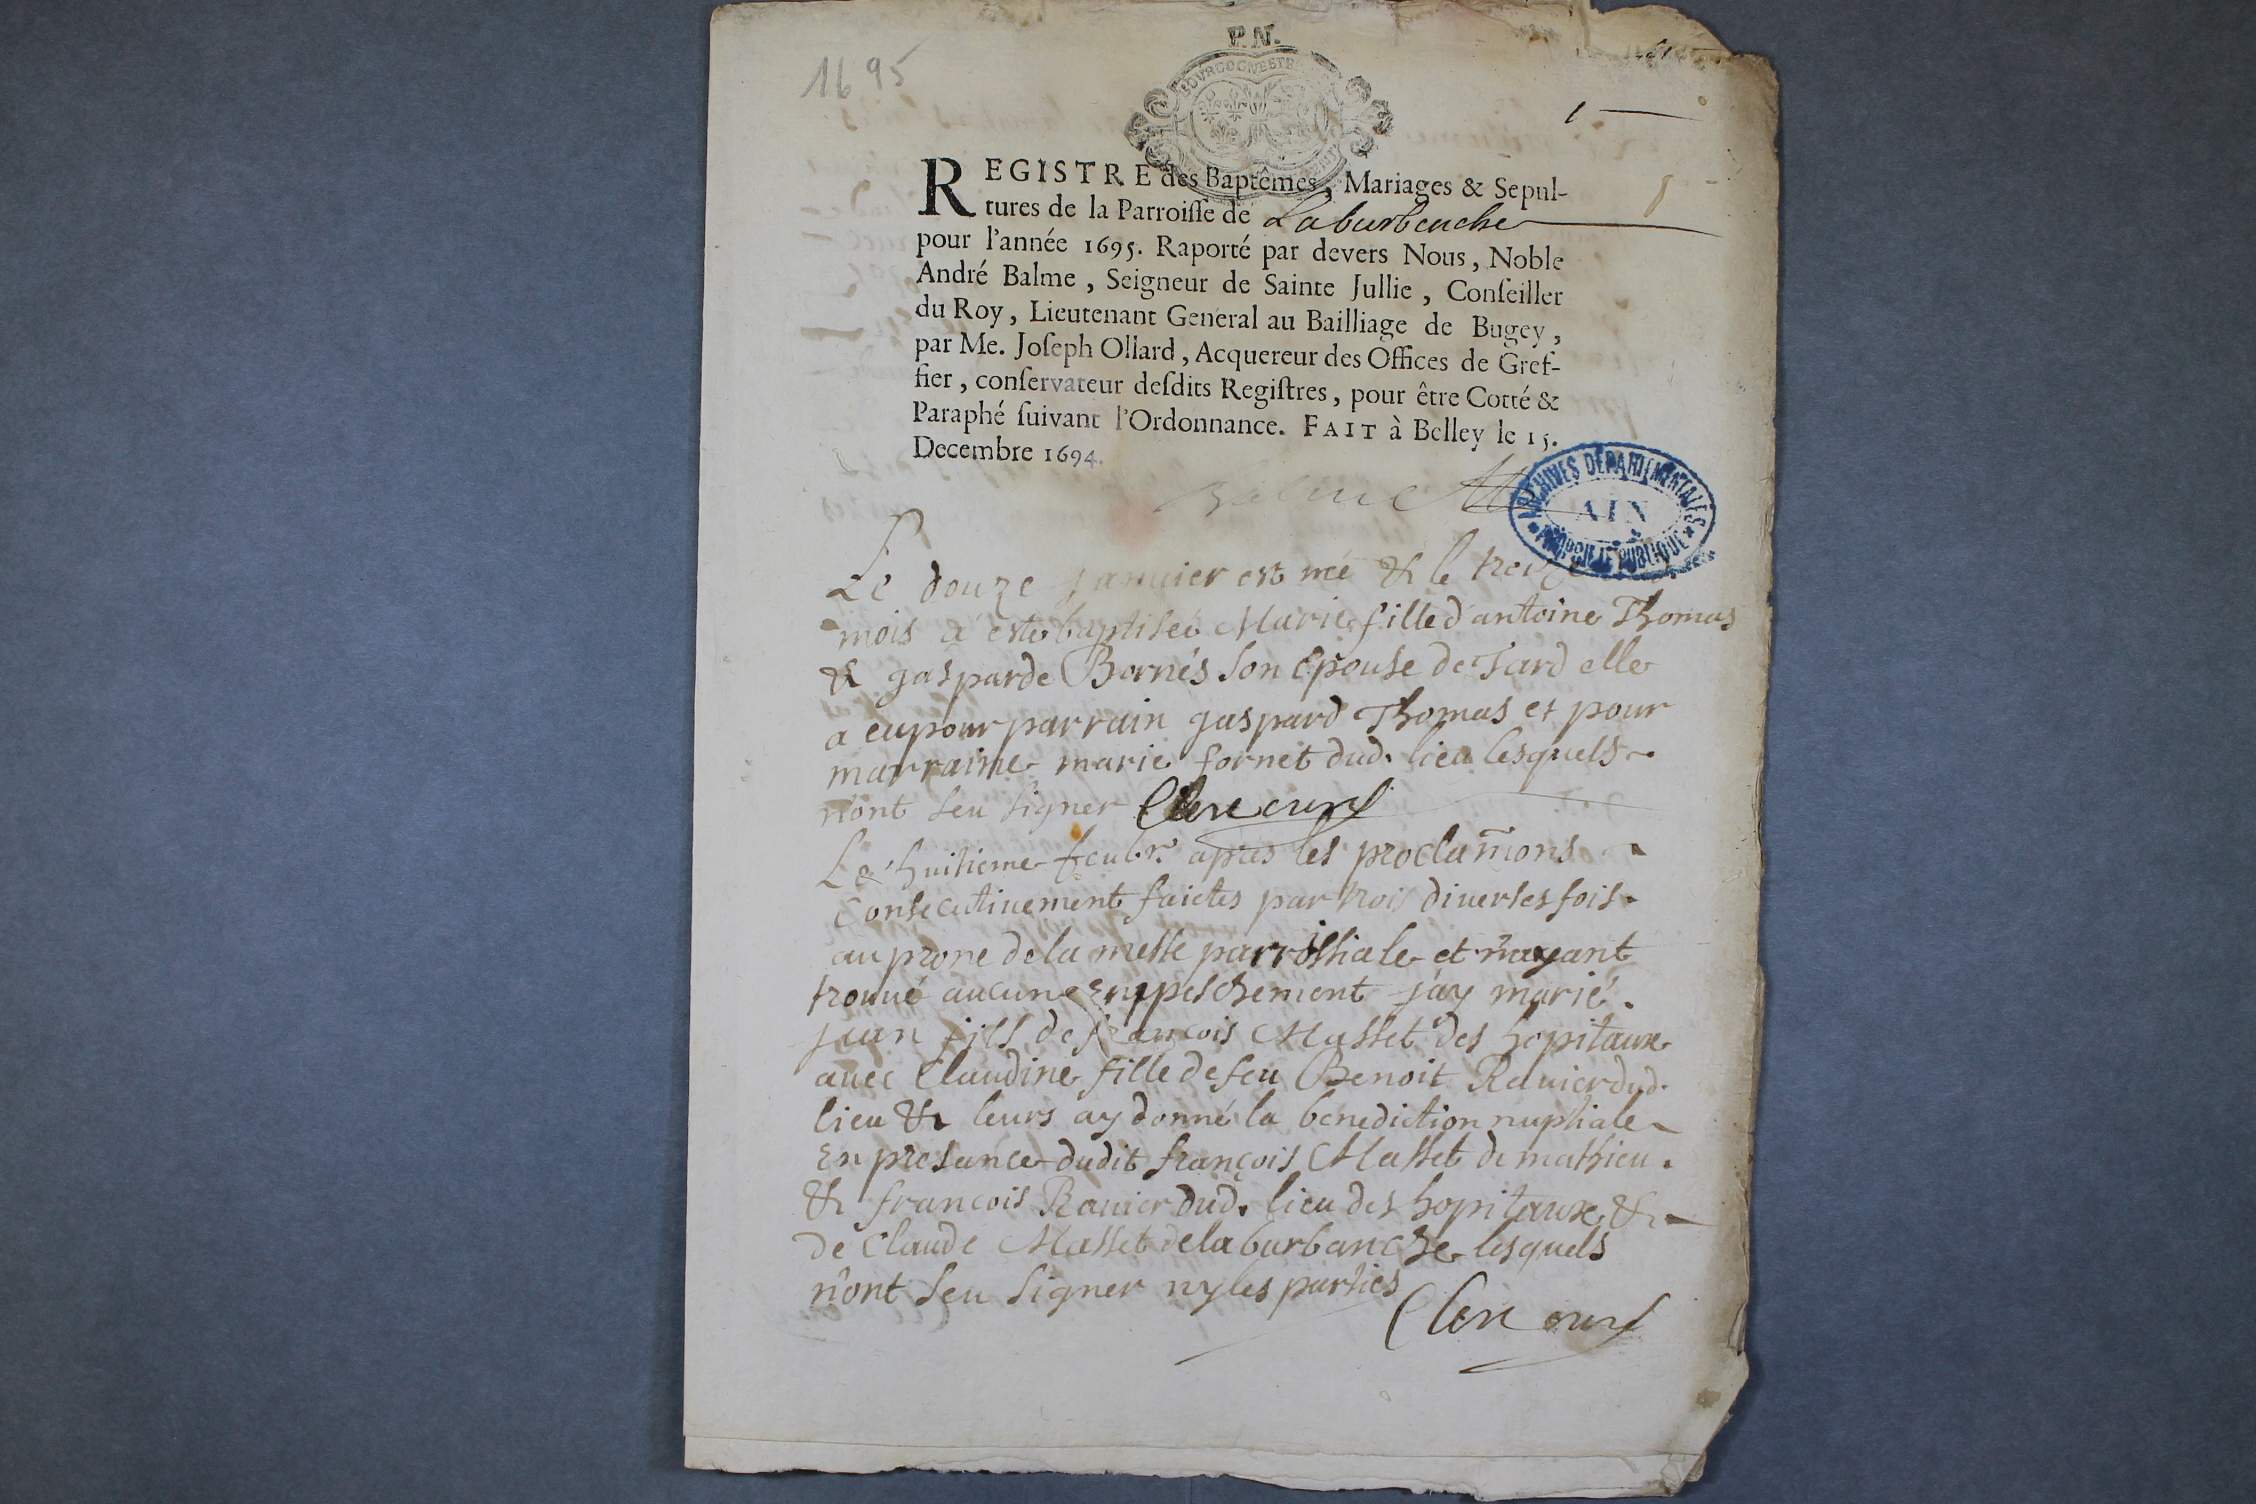 P. N.
1695
REGISTRE des Baptêmes, Mariages & Sepul-
tures de la Parroisse de Laburbenche
pour l'année 1695. Raporté par devers Nous, Noble
André Balme, Seigneur de Sainte Jullie, Conseiller
du Roy, Lieutenant General au Bailliage de Bugey,
par Me. Joseph Ollard, Acquereur des Offices de Gref-
fier, conservateur desdits Registres, pour être Cotté &
Paraphé suivant l'Ordonnance. FAIT à Belley le 15.
Decembre 1694.
Balme
ARCHIVES DÉPARTEMENTALES
AIN
PROPRIÉTÉ PUBLIQUE
Le douze Januier est née & le treize
mois a esté baptiseé Marie fille d'antoine Thomas
& gasparde Bornés son Epouse de Tard elle
a eu pour parrain gaspard Thomas et pour
marraine marie fornet dud. lieu lesquels
n'ont seu signer Clerc curé
Le huitieme feubr. apres les proclam̄ons
consecutiuement faictes par trois diuerses fois
au prone de la messe parroissiale et n'ayant
trouué aucune Empeschement j'ay marié
jean fils de françois Masset des hopitaux
auec Claudine fille de feu Benoit Rauier dud.
lieu & leurs ay donné la benediction nuptiale
En presance dudit françois Masset de mathieu
& francois Rauier dud. lieu des hopitaux &
de Claude Masset de la burbanche lesquels
n'ont seu signer ny les parties
Clerc curé